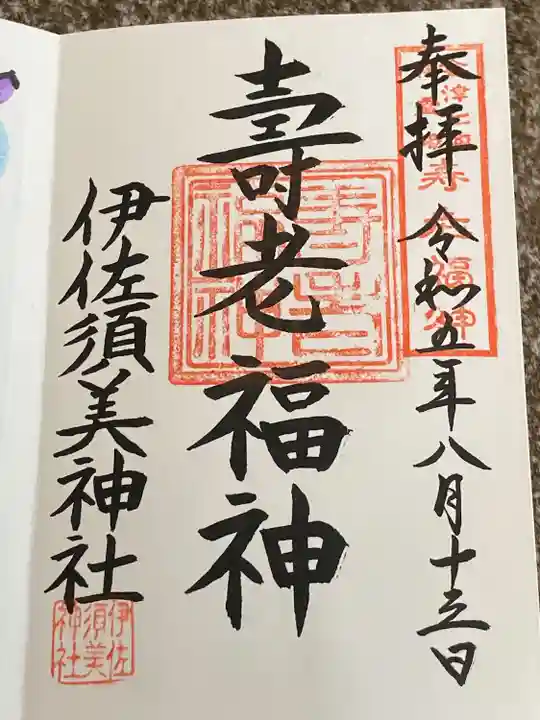 奉拝 令和五年八月十三日
壽老福神
伊佐須美神社
伊佐
須美
神社